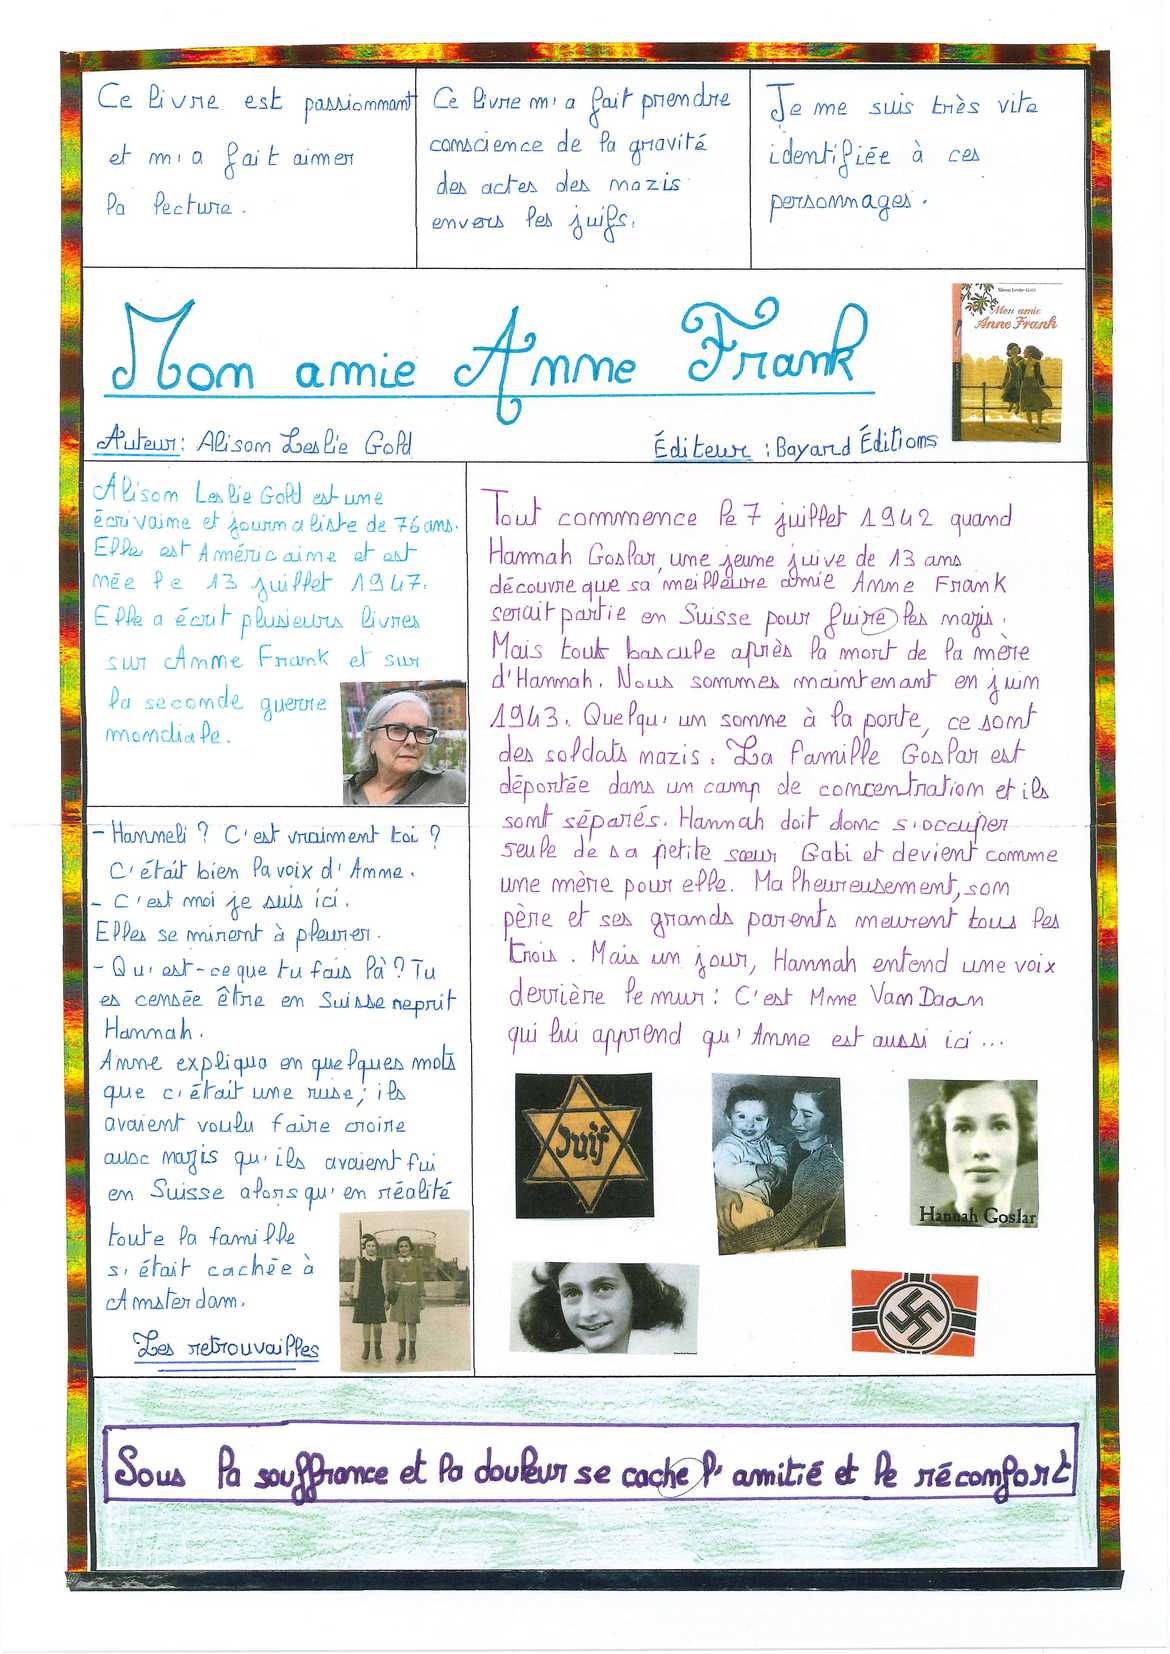 Ce livre est passionnant
et m'a fait aimer
la lecture.
Ce livre m'a fait prendre
conscience de la gravité
des actes des nazis
envers les juifs.
Je me suis très vite
identifiée à ces
personnages.
Mon amie Anne Frank
Alison Leslie Gold
Mon amie
Anne Frank
Auteur: Alison Leslie Gold
Éditeur : Bayard Éditions
Alison Leslie Gold est une
écrivaine et journaliste de 76 ans.
Elle est Américaine et est
née le 13 juillet 1947.
Elle a écrit plusieurs livres
sur Anne Frank et sur
la seconde guerre
mondiale.
- Hanneli ? C'est vraiment toi ?
C'était bien la voix d'Anne.
- C'est moi je suis ici.
Elles se mirent à pleurer.
- Qu'est-ce que tu fais là ? Tu
es censée être en Suisse reprit
Hannah.
Anne expliqua en quelques mots
que c'était une ruse; ils
avaient voulu faire croire
aux nazis qu'ils avaient fui
en Suisse alors qu'en réalité
toute la famille
s'était cachée à
Amsterdam.
Les retrouvailles
Tout commence le 7 juillet 1942 quand
Hannah Goslar, une jeune juive de 13 ans
découvre que sa meilleure amie Anne Frank
serait partie en Suisse pour fuire les nazis.
Mais tout bascule après la mort de la mère
d'Hannah. Nous sommes maintenant en juin
1943. Quelqu'un somme à la porte, ce sont
des soldats nazis. La famille Goslar est
déportée dans un camp de concentration et ils
sont séparés. Hannah doit donc s'occuper
seule de sa petite sœur Gabi et devient comme
une mère pour elle. Malheureusement, son
père et ses grands parents meurent tous les
trois. Mais un jour, Hannah entend une voix
derrière le mur: C'est Mme Van Daan
qui lui apprend qu'Anne est aussi ici ...
Juif
Hannah Goslar
Sous la souffrance et la douleur se cache l'amitié et le réconfort